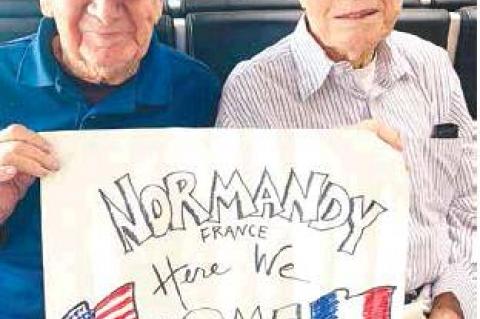 NORMANDY
FRANCE
Here We
COME